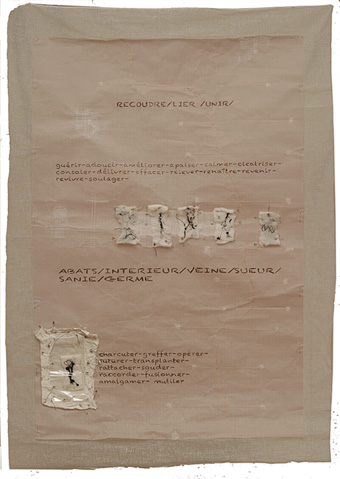 RECOUDRE/LIER /UNIR/
guérir-adoucir-améliorer-apaiser-calmer-électriser-
consoler-délivrer-effacer-relever-renaître-revenir-
revivre-soulager-
ABATS/INTERIEUR/VEINE/SUEUR/
SANIE/GERME
charcuter-greffer-opérer-
suturer-transplanter-
rattacher-souder-
raccorder-fusionner-
amalgamer-mutiler